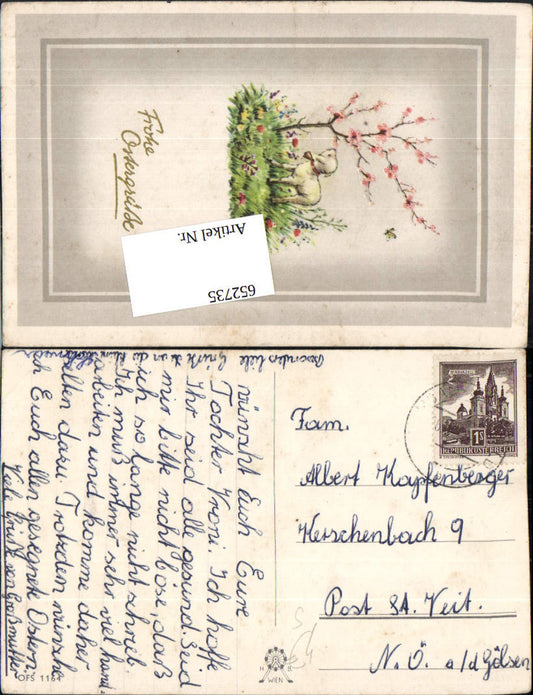 Frohe
Ostergrüße
Artikel Nr.
652735
wünscht Euch Eure
Tochter Vroni. Ich hoffe
Ihr seid alle gesund. Sud
mir bitte nicht böse, daß
ich so lange nicht schreib.
Ich muß immer sehr viel hand.
arbeiten und komme daher
selten dazu Trotzdem wünsche
ich Euch allen gesegnete Ostern.
Viele Grüße von Großmutter
Besonders liebe Grüße an die
Fam.
Albert Kapfenberger
Kerschenbach 9
Post St. Veit.
N.Ö. a/d Gölsen
MARIAZELL
1S
REPUBLIK ÖSTERREICH
H B
WIEN
OFS 1164